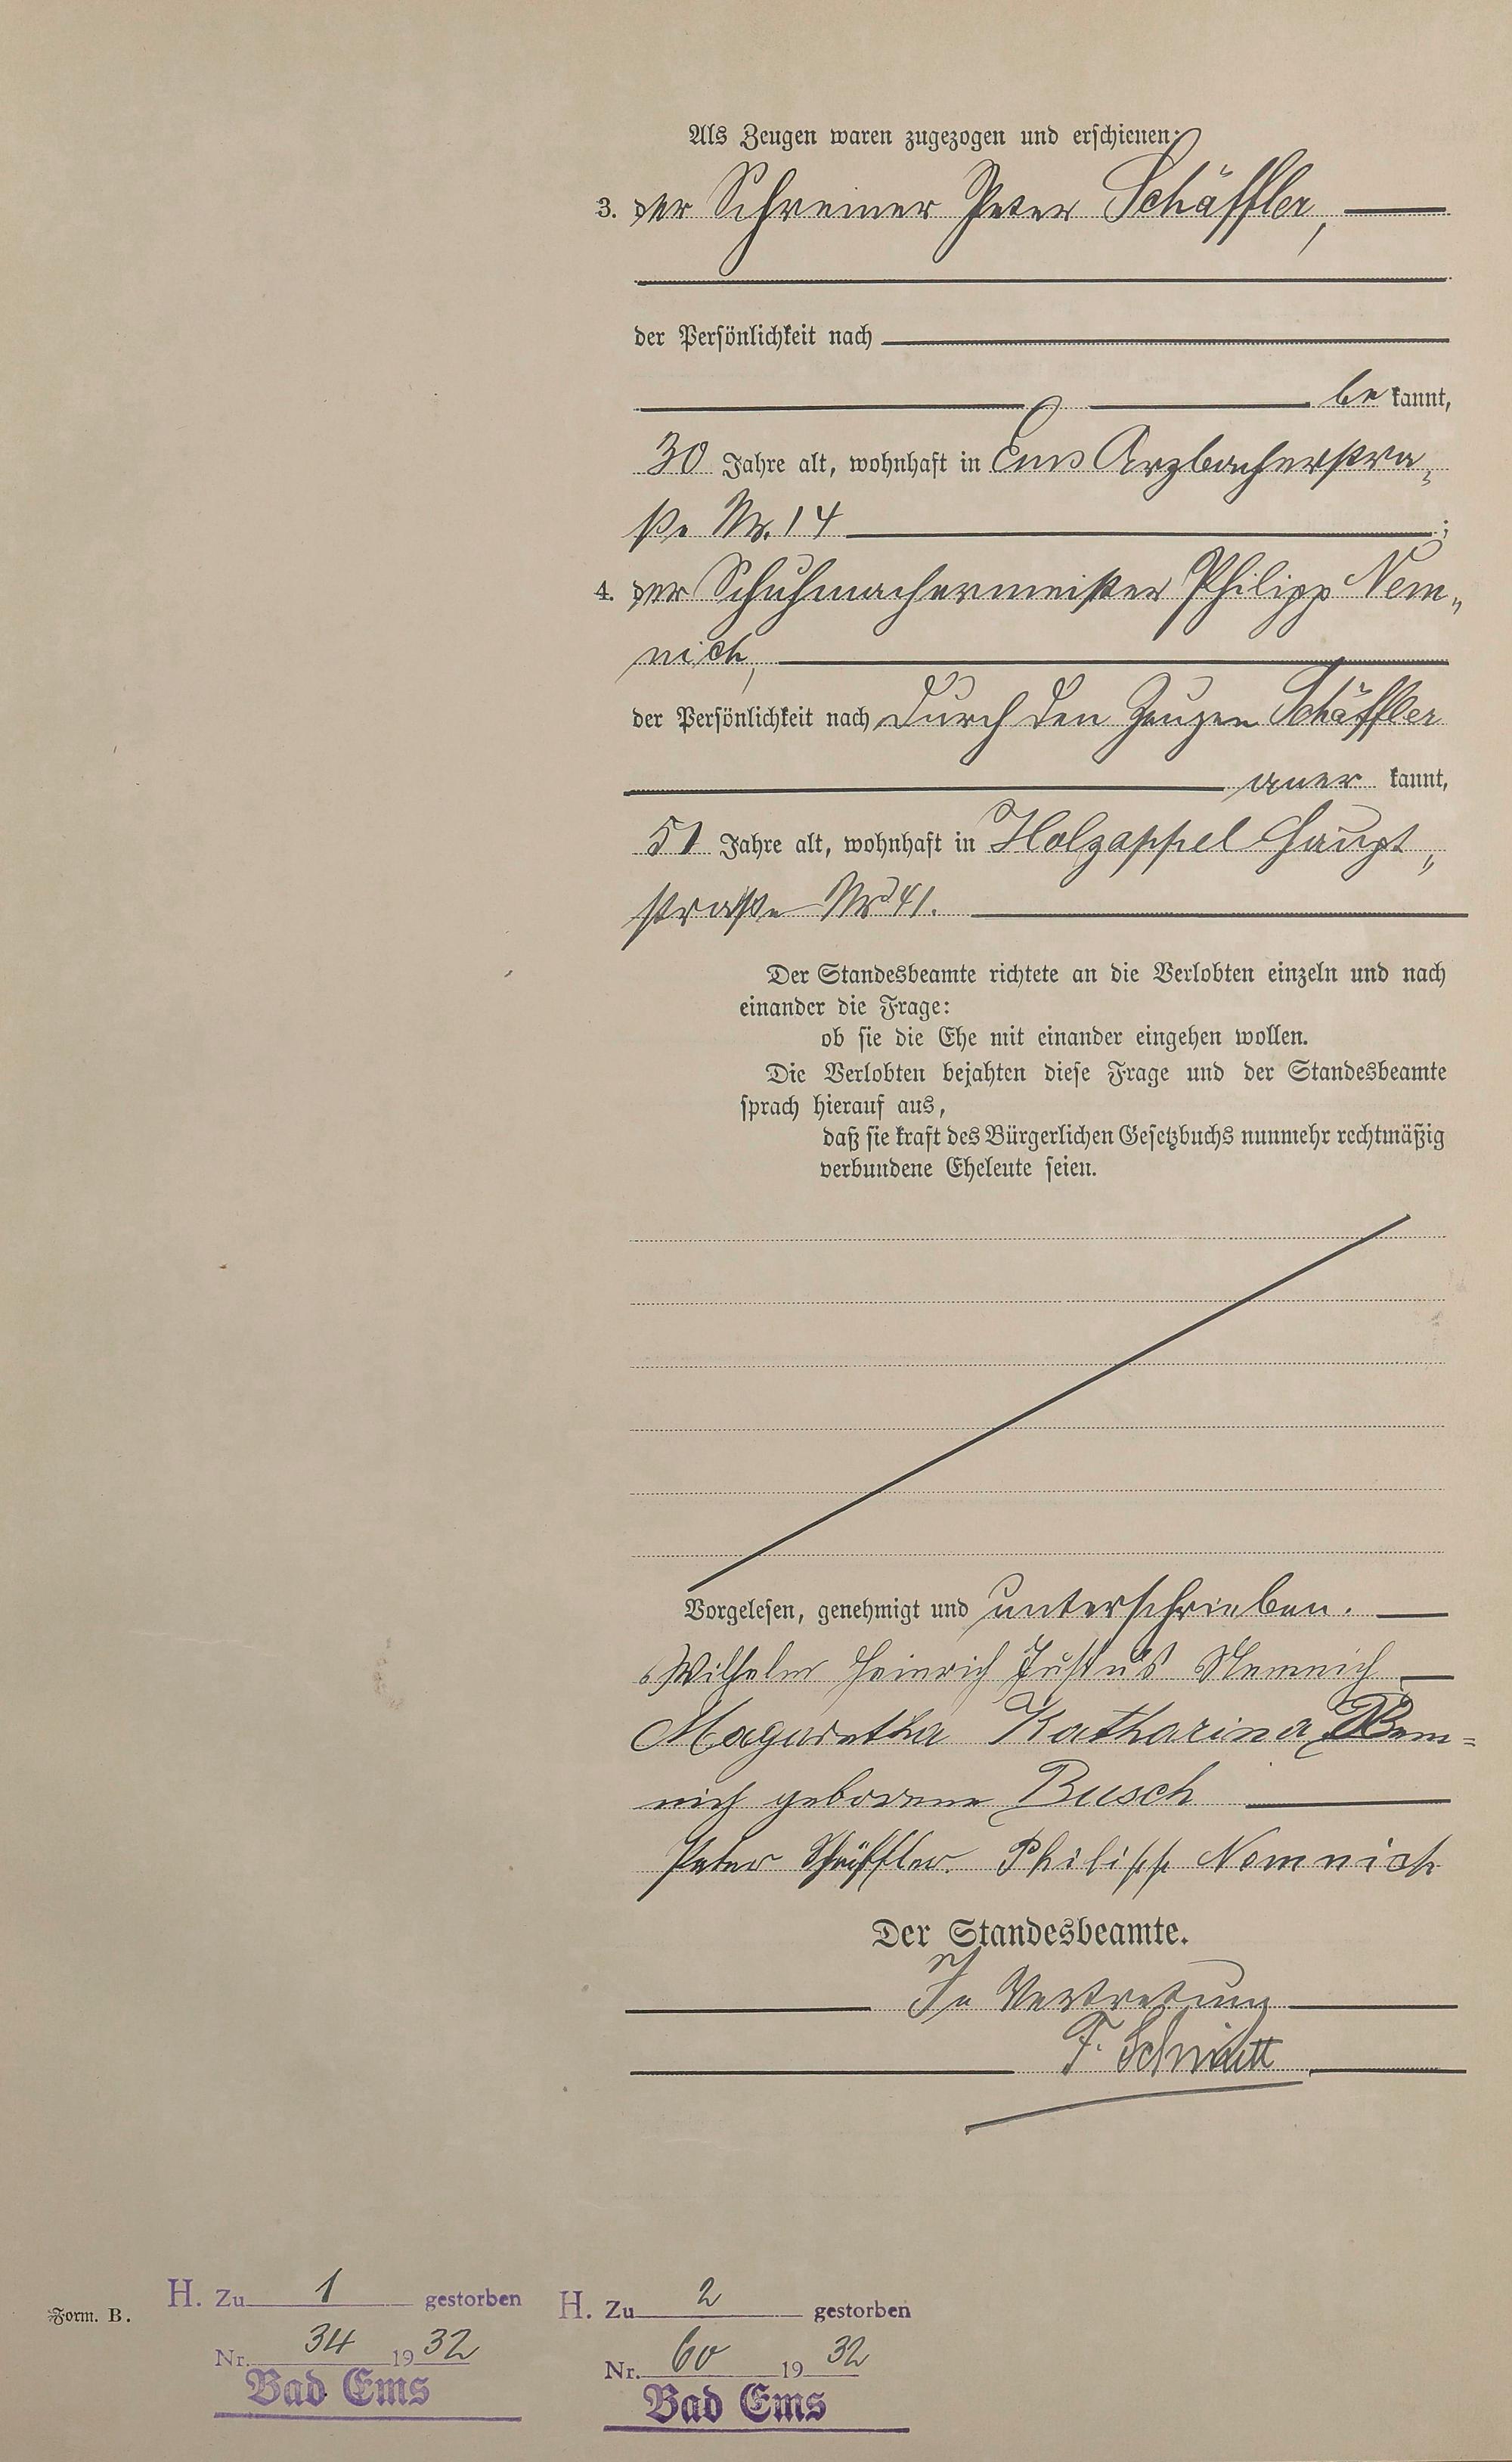 Als Zeugen waren zugezogen und erschienen:
3. der Schreiner Peter Schäffler,
der Persönlichkeit nach
be kannt,
30 Jahre alt, wohnhaft in Ems Arzbacherstra-
ße Nr. 14 ;
4. der Schuhmachermeister Philipp Nem-
nich,
der Persönlichkeit nach durch den Zeugen Schäffler
aner kannt,
51 Jahre alt, wohnhaft in Holzappel Haupt-
straße Nr 41.
Der Standesbeamte richtete an die Verlobten einzeln und nach
einander die Frage:
ob sie die Ehe mit einander eingehen wollen.
Die Verlobten bejahten diese Frage und der Standesbeamte
sprach hierauf aus,
daß sie kraft des Bürgerlichen Gesetzbuchs nunmehr rechtmäßig
verbundene Eheleute seien.
Vorgelesen, genehmigt und unterschrieben.
Wilhelm Heinrich Justus Nemnich
Magaretha Katharina Nem=
nich geborene Busch
Peter Schäffler. Philipp Nemnich
Der Standesbeamte.
In Vertretung
F. Schmitt
H. Zu 1 gestorben H. Zu 2 gestorben
Form. B.
Nr. 34 1932 Nr. 60 1932
Bad Ems Bad Ems